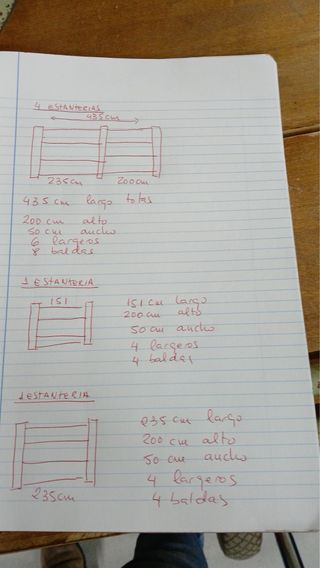 4 ESTANTERIAS
435cm
235cm 200cm
435 cm largo total
200 cm alto
50 cm ancho
6 largeros
8 baldas
1 ESTANTERIA
151
151 cm largo
200 cm alto
50 cm ancho
4 largeros
4 baldas
1 ESTANTERIA
235 cm largo
200 cm alto
50 cm ancho
4 largeros
4 baldas
235cm